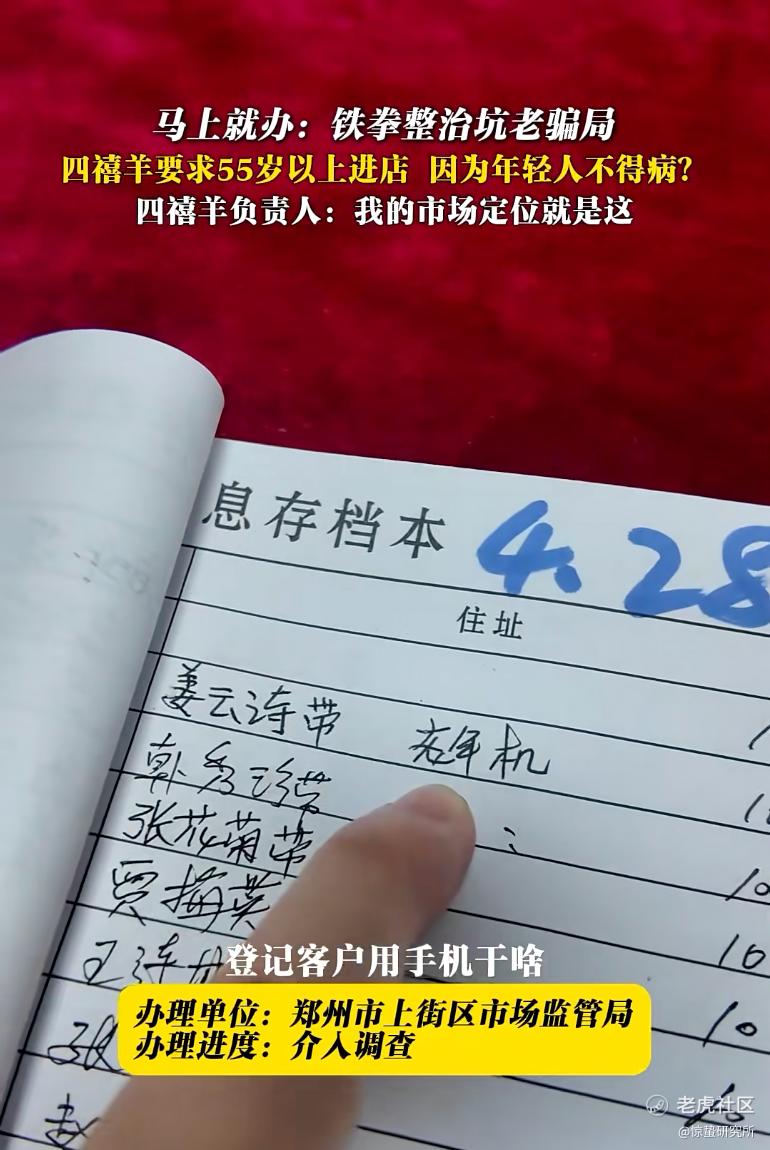 马上就办：铁拳整治坑老骗局
四禧羊要求55岁以上进店 因为年轻人不得病？
四禧羊负责人：我的市场定位就是这
息存档本 4.28
住址
姜云诗带 老年机
韩秀珍带
张花菊带
贾梅英
王
张
赵
登记客户用手机干啥
办理单位：郑州市上街区市场监管局
办理进度：介入调查
老虎社区
@惊蛰研究所